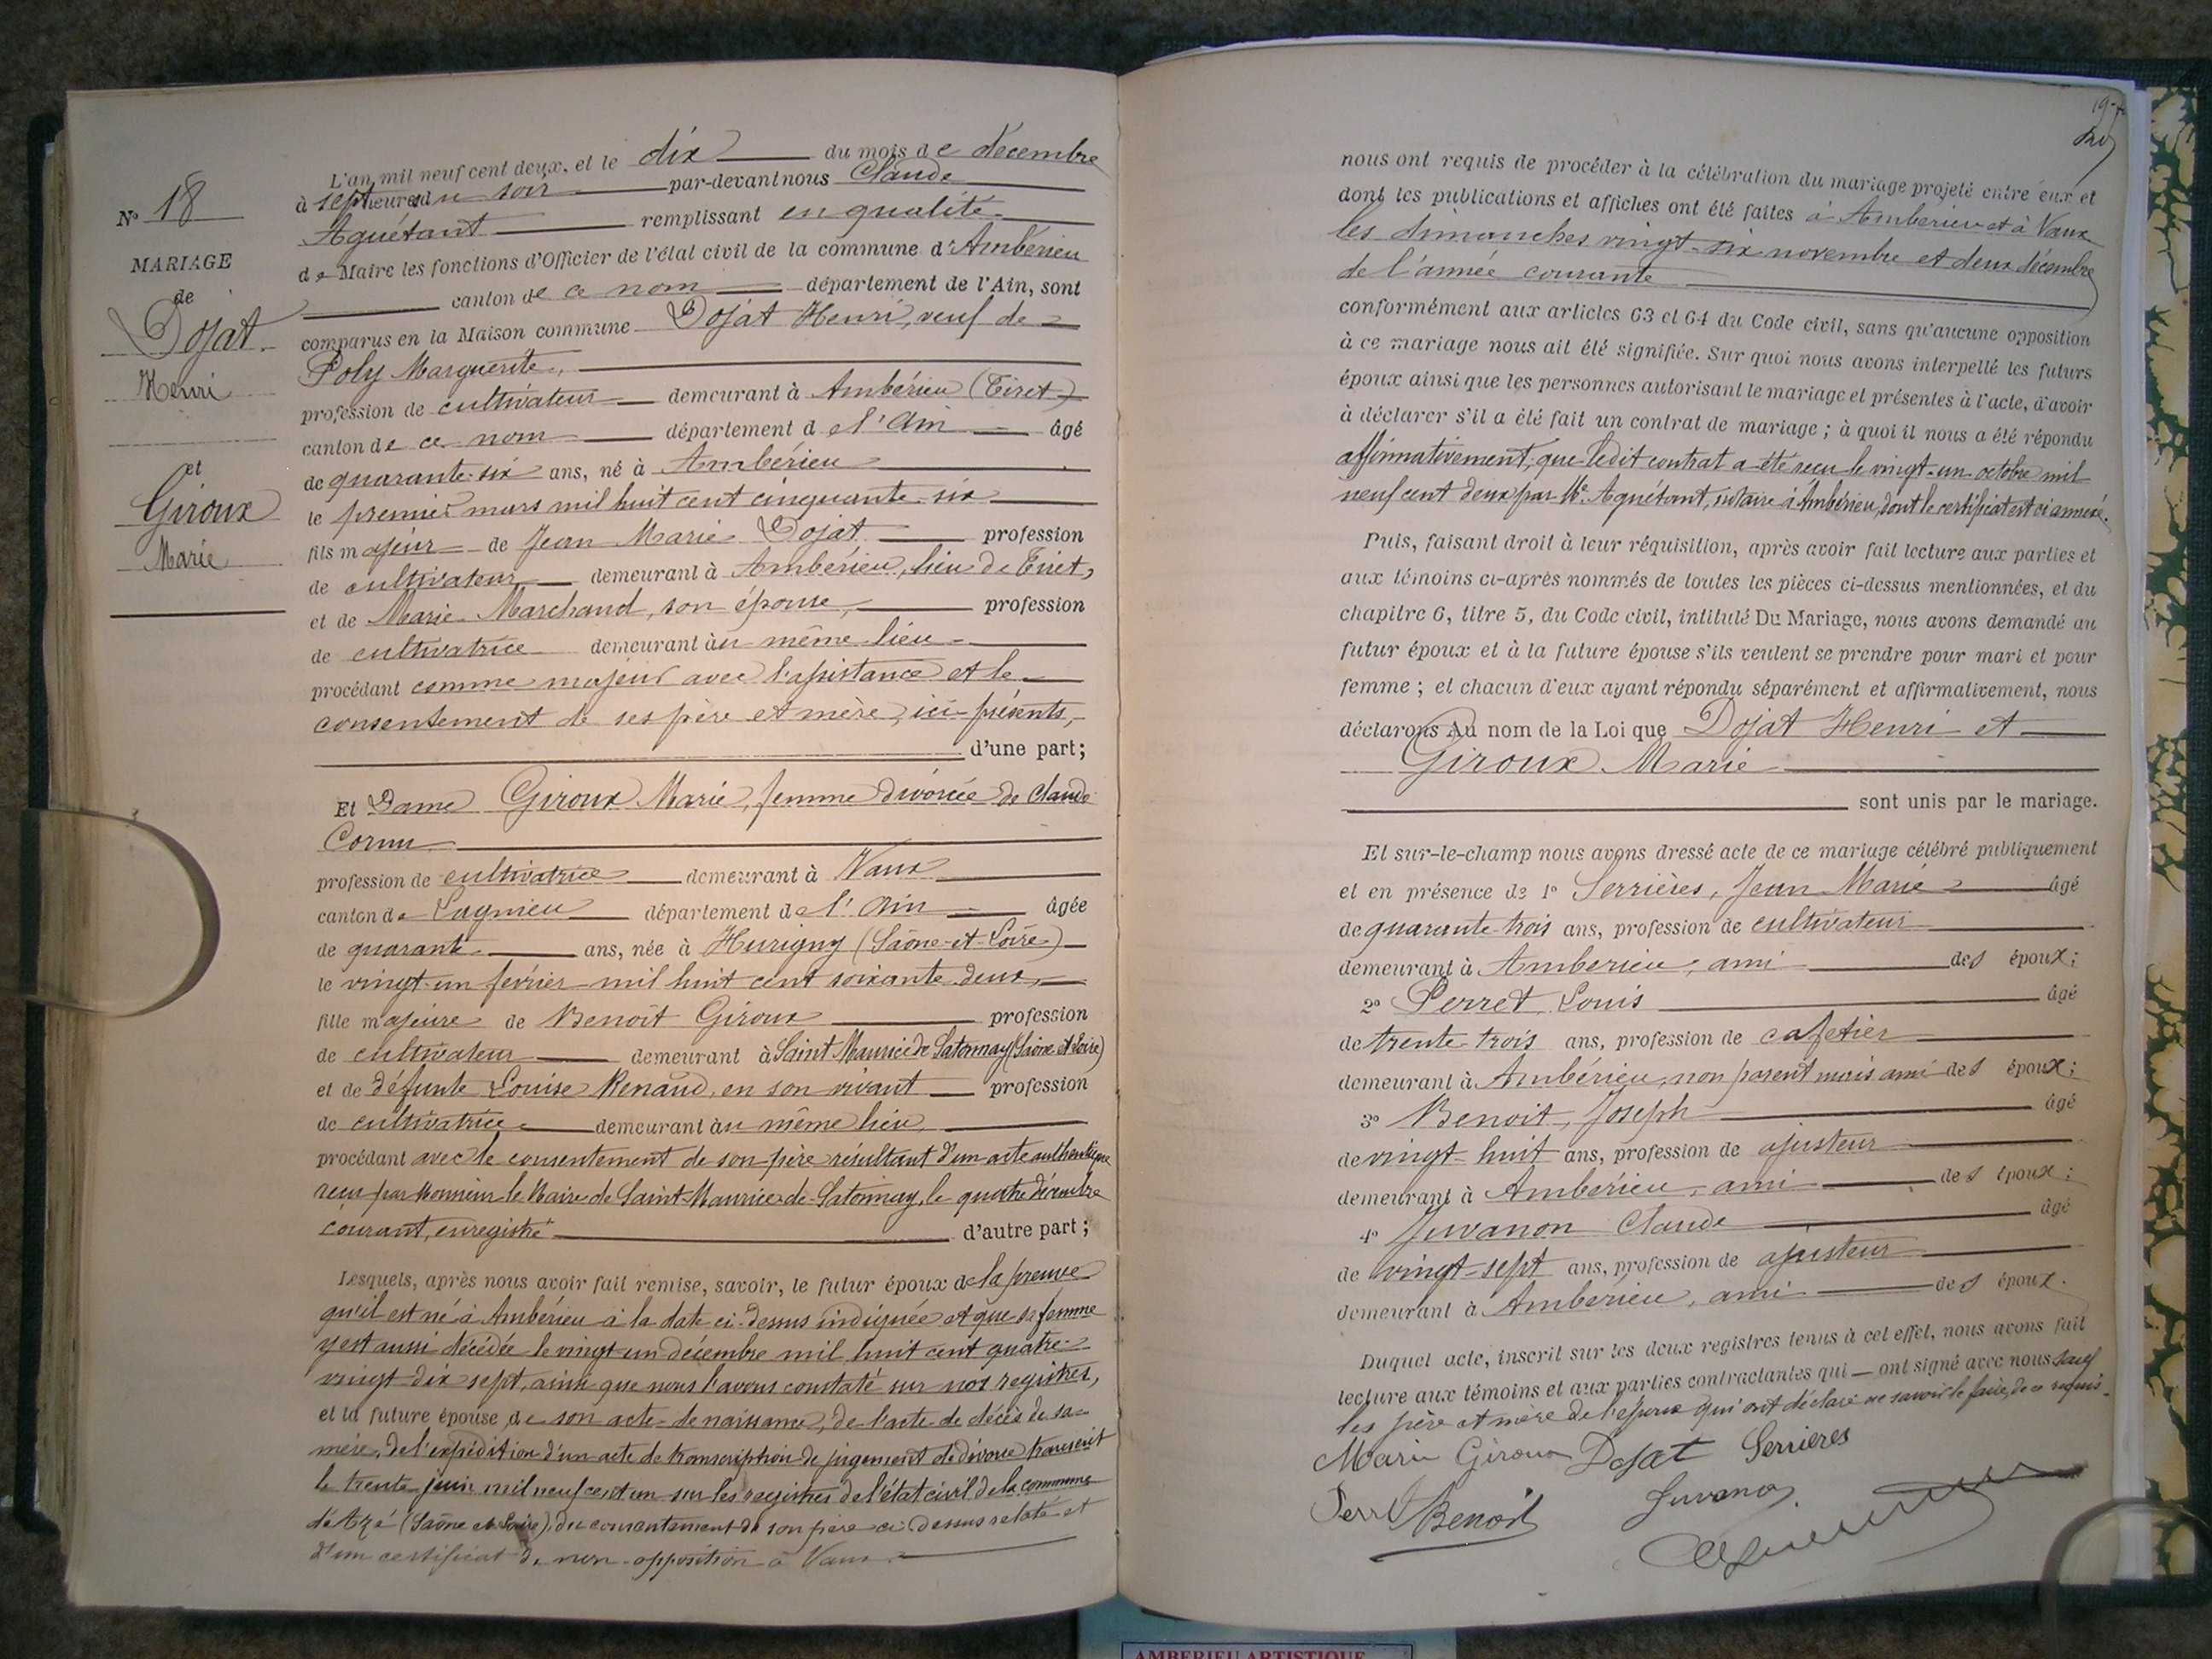 N° 18
MARIAGE
de
Dojat
Henri
et
Giroux
Marie
L'an mil neuf cent deux, et le dix du mois de décembre
à sept heures du soir par-devant nous Claude
Aguétant remplissant en qualité
de Maire les fonctions d'Officier de l'état civil de la commune d'Ambérieu
canton de ce nom département de l'Ain, sont
comparus en la Maison commune Dojat Henri, veuf de
Poly Marguerite,
profession de cultivateur demeurant à Ambérieu (Tiret)
canton de ce nom département de l'Ain âgé
de quarante-six ans, né à Ambérieu
le premier mars mil huit cent cinquante-six
fils majeur de Jean Marie Dojat profession
de cultivateur demeurant à Ambérieu, lieu de Tiret,
et de Marie Marchand, son épouse, profession
de cultivatrice demeurant au même lieu
procédant comme majeur avec l'assistance et le
consentement de ses père et mère, ici présents,
d'une part;
Et Dame Giroux Marie, femme divorcée de Claude
Cornu
profession de cultivatrice demeurant à Vaux
canton de Lagnieu département de l'Ain âgée
de quarante ans, née à Hurigny (Saône-et-Loire)
le vingt-un février mil huit cent soixante-deux,
fille majeure de Benoît Giroux profession
de cultivateur demeurant à Saint Maurice de Satonnay (Saône et Loire)
et de défunte Louise Renaud, en son vivant profession
de cultivatrice demeurant au même lieu,
procédant avec le consentement de son père résultant d'un acte authentique
reçu par Monsieur le Maire de Saint-Maurice-de-Satonnay, le quatre décembre
courant, enregistré d'autre part;
Lesquels, après nous avoir fait remise, savoir, le futur époux de la preuve
qu'il est né à Ambérieu à la date ci-dessus indiquée et que sa femme
y est aussi décédée le vingt-un décembre mil huit cent quatre-
vingt-dix sept, ainsi que nous l'avons constaté sur nos registres,
et la future épouse, de son acte de naissance, de l'acte de décès de sa
mère, de l'expédition d'un acte de transcription de jugement de divorce transcrit
le trente juin mil neuf cent un sur les registres de l'état civil de la commune
d'Azé (Saône et Loire), du consentement de son père ci-dessus relaté et
d'un certificat de non-opposition à Vaux.
nous ont requis de procéder à la célébration du mariage projeté entre eux et
dont les publications et affiches ont été faites à Ambérieu et à Vaux
les dimanches vingt-six novembre et deux décembre
de l'année courante
conformément aux articles 63 et 64 du Code civil, sans qu'aucune opposition
à ce mariage nous ait été signifiée. Sur quoi nous avons interpellé les futurs
époux ainsi que les personnes autorisant le mariage et présentes à l'acte, d'avoir
à déclarer s'il a été fait un contrat de mariage; à quoi il nous a été répondu
affirmativement, que ledit contrat a été reçu le vingt-un octobre mil
neuf cent deux par Me Aguétant, notaire à Ambérieu, dont le certificat est ci annexé.
Puis, faisant droit à leur réquisition, après avoir fait lecture aux parties et
aux témoins ci-après nommés de toutes les pièces ci-dessus mentionnées, et du
chapitre 6, titre 5, du Code civil, intitulé Du Mariage, nous avons demandé au
futur époux et à la future épouse s'ils veulent se prendre pour mari et pour
femme; et chacun d'eux ayant répondu séparément et affirmativement, nous
déclarons Au nom de la Loi que Dojat Henri et
Giroux Marie
sont unis par le mariage.
Et sur-le-champ nous avons dressé acte de ce mariage célébré publiquement
et en présence de 1° Serrières, Jean Marie âgé
de quarante-trois ans, profession de cultivateur
demeurant à Ambérieu, ami des époux;
2° Perret Louis âgé
de trente-trois ans, profession de cafetier
demeurant à Ambérieu, non parent mais ami des époux;
3° Benoit, Joseph âgé
de vingt-huit ans, profession de ajusteur
demeurant à Ambérieu, ami des époux;
4° Juvanon Claude âgé
de vingt-sept ans, profession de ajusteur
demeurant à Ambérieu, ami des époux.
Duquel acte, inscrit sur les deux registres tenus à cet effet, nous avons fait
lecture aux témoins et aux parties contractantes qui ont signé avec nous sauf
les père et mère de l'époux qui ont déclaré ne savoir le faire, de ce requis.
Marie Giroux Dojat Serrieres
Perret Benoit Juvanon
AMBERIEU ARTISTIQUE